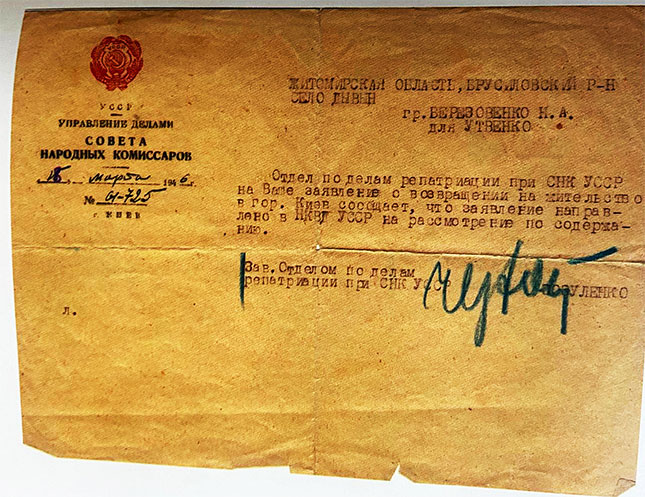 УССР
УПРАВЛЕНИЕ ДЕЛАМИ
СОВЕТА
НАРОДНЫХ КОМИССАРОВ
марта 1946 г.
№ 01-725
г. КИЕВ
ЖИТОМИРСКАЯ ОБЛАСТЬ, БРУСИЛОВСКИЙ Р-Н
СЕЛО
гр. БЕРЕЗОВЕНКО Н.А.
для УТВЕНКО
Отдел по делам репатриации при СНК УССР
на Ваше заявление о возвращении на жительство
в гор. Киев сообщает, что заявление направ-
лено в НКВД УССР на рассмотрение по содержа-
нию.
Зав. Отделом по делам
репатриации при СНК УССР
Л.